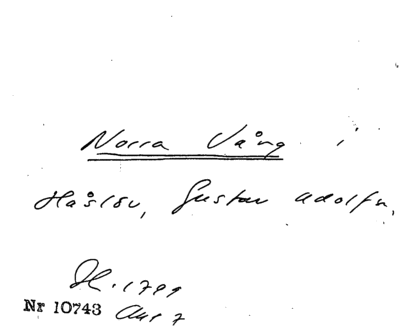 Norra Vång i
Håslöv, Gustav Adolfn.
H. 1799
Nr 10743 Akt 7